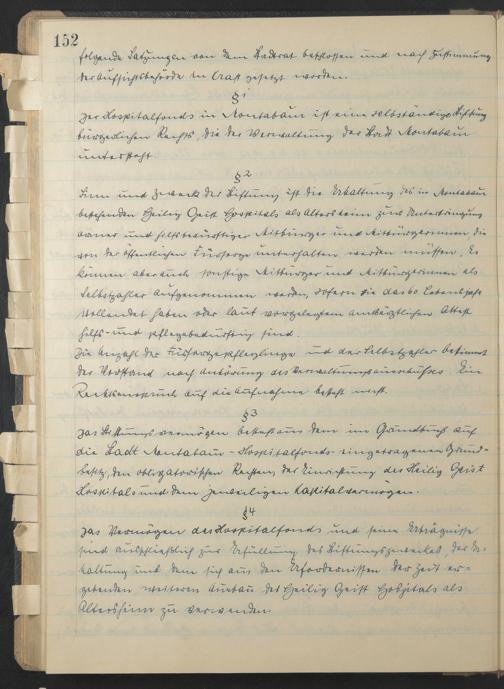 152
folgende Satzungen von dem Stadtrat beschlossen und nach Zustimmung
der Aufsichtsbehörde in Craft gesetzt worden.
§ 1
Der Hospitalfonds in Montabaur ist eine selbständige Stiftung
bürgerlichen Rechts, die der Verwaltung der Stadt Montabaur
untersteht.
§ 2
Sinn und Zweck der Stiftung ist die Erhaltung des in Montabaur
bestehenden Heilig Geist Hospitals als Altersheim zur Unterbringung
armer und hilfsbedürftiger Mitbürger und Mitbürgerinnen die
von der öffentlichen Fürsorge unterhalten werden müssen. Es
können aber auch sonstige Mitbürger und Mitbürgerinnen als
Selbstzahler aufgenommen werden, sofern sie das 60. Lebensjahr
vollendet haben oder laut vorgelegtem amtsärztlichen Attest
hilfs- und pflegebedürftig sind.
Die Anzahl der Fürsorgepfleglinge und der Selbstzahler bestimmt
der Vorstand nach Anhörung des Verwaltungsausschusses. Ein
Rechtsanspruch auf die Aufnahme besteht nicht.
§ 3
Das Stiftungsvermögen besteht aus dem im Grundbuch auf
die Stadt Montabaur - Hospitalfonds - eingetragenen Grund-
besitz, den obligatorischen Rechten, der Einrichtung des Heilig Geist
Hospitals und dem jeweiligen Kapitalvermögen.
§ 4
Das Vermögen des Hospitalfonds und seine Erträgnisse
sind ausschließlich zur Erfüllung des Stiftungszweckes, der Er-
haltung und dem sich aus den Erfordernissen der Zeit er-
gebenden weiteren Ausbau des Heilig Geist Hospitals als
Altersheim zu verwenden.